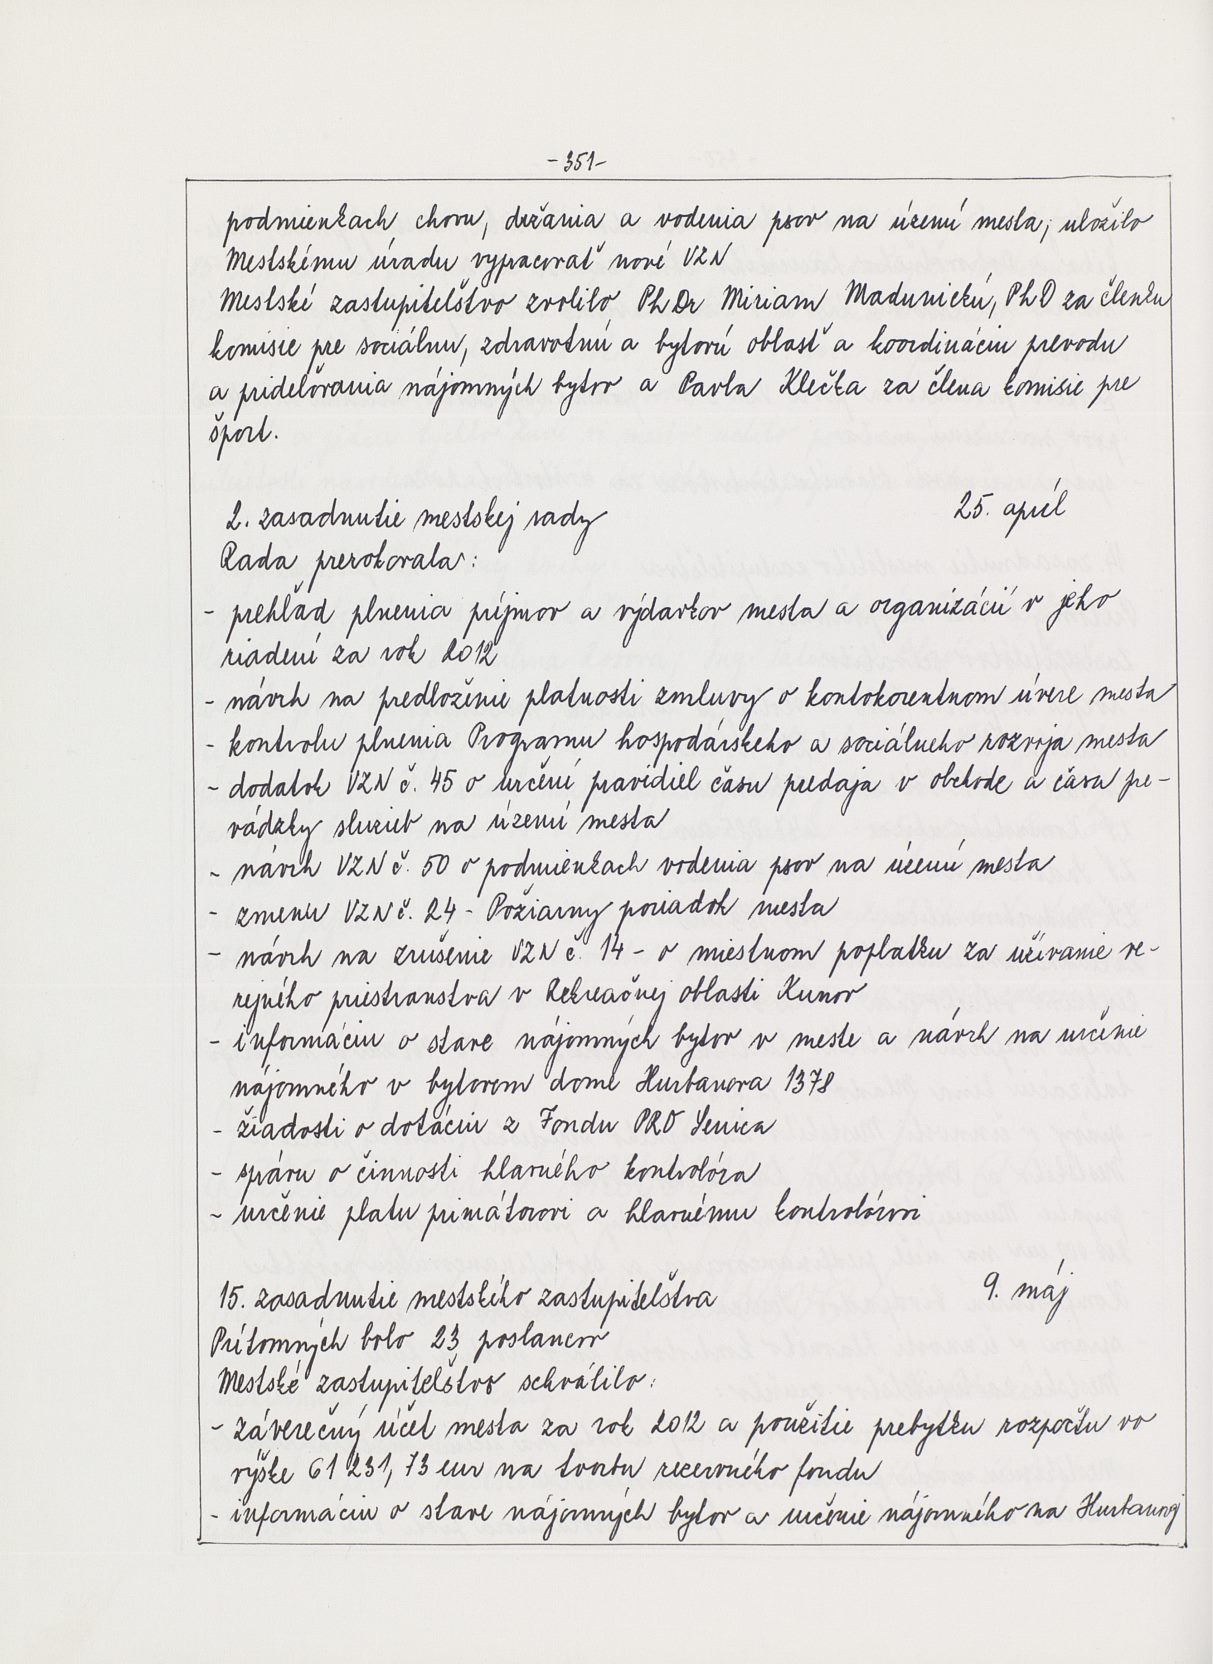 -351-
podmienkach chovu, držania a vodenia psov na území mesta, uložilo
Mestskému úradu vypracovať nové VZN
Mestské zastupiteľstvo zvolilo PhDr Miriam Madunickú, PhD za členku
komisie pre sociálnu, zdravotnú a bytovú oblasť a koordináciu prevodu
a prideľovania nájomných bytov a Pavla Klečka za člena komisie pre
šport.
2. zasadnutie mestskej rady 25. apríl
Rada prerokovala:
- prehľad plnenia príjmov a výdavkov mesta a organizácií v jeho
riadení za rok 2012
- návrh na predloženie platnosti zmluvy o kontokorentnom úvere mesta
- kontrolu plnenia Programu hospodárskeho a sociálneho rozvoja mesta
- dodatok VZN č. 45 o určení pravidiel času predaja v obchode a času pre-
vádzky služieb na území mesta
- návrh VZN č. 50 o podmienkach vodenia psov na území mesta
- zmenu VZN č. 24 - Požiarny poriadok mesta
- návrh na zrušenie VZN č. 14 - o miestnom poplatku za užívanie ve-
rejného priestranstva v Rekreačnej oblasti Kunov
- informáciu o stave nájomných bytov v meste a návrh na určenie
nájomného v bytovom dome Hurbanova 1378
- žiadosti o dotáciu z Fondu PRO Senica
- správu o činnosti hlavného kontrolóra
- určenie platu primátorovi a hlavnému kontrolórovi
15. zasadnutie mestského zastupiteľstva 9. máj
Prítomných bolo 23 poslancov
Mestské zastupiteľstvo schválilo:
- záverečný účet mesta za rok 2012 a použitie prebytku rozpočtu vo
výške 61 231,73 eur na tvorbu rezervného fondu
- informáciu o stave nájomných bytov a určenie nájomného na Hurbanovej